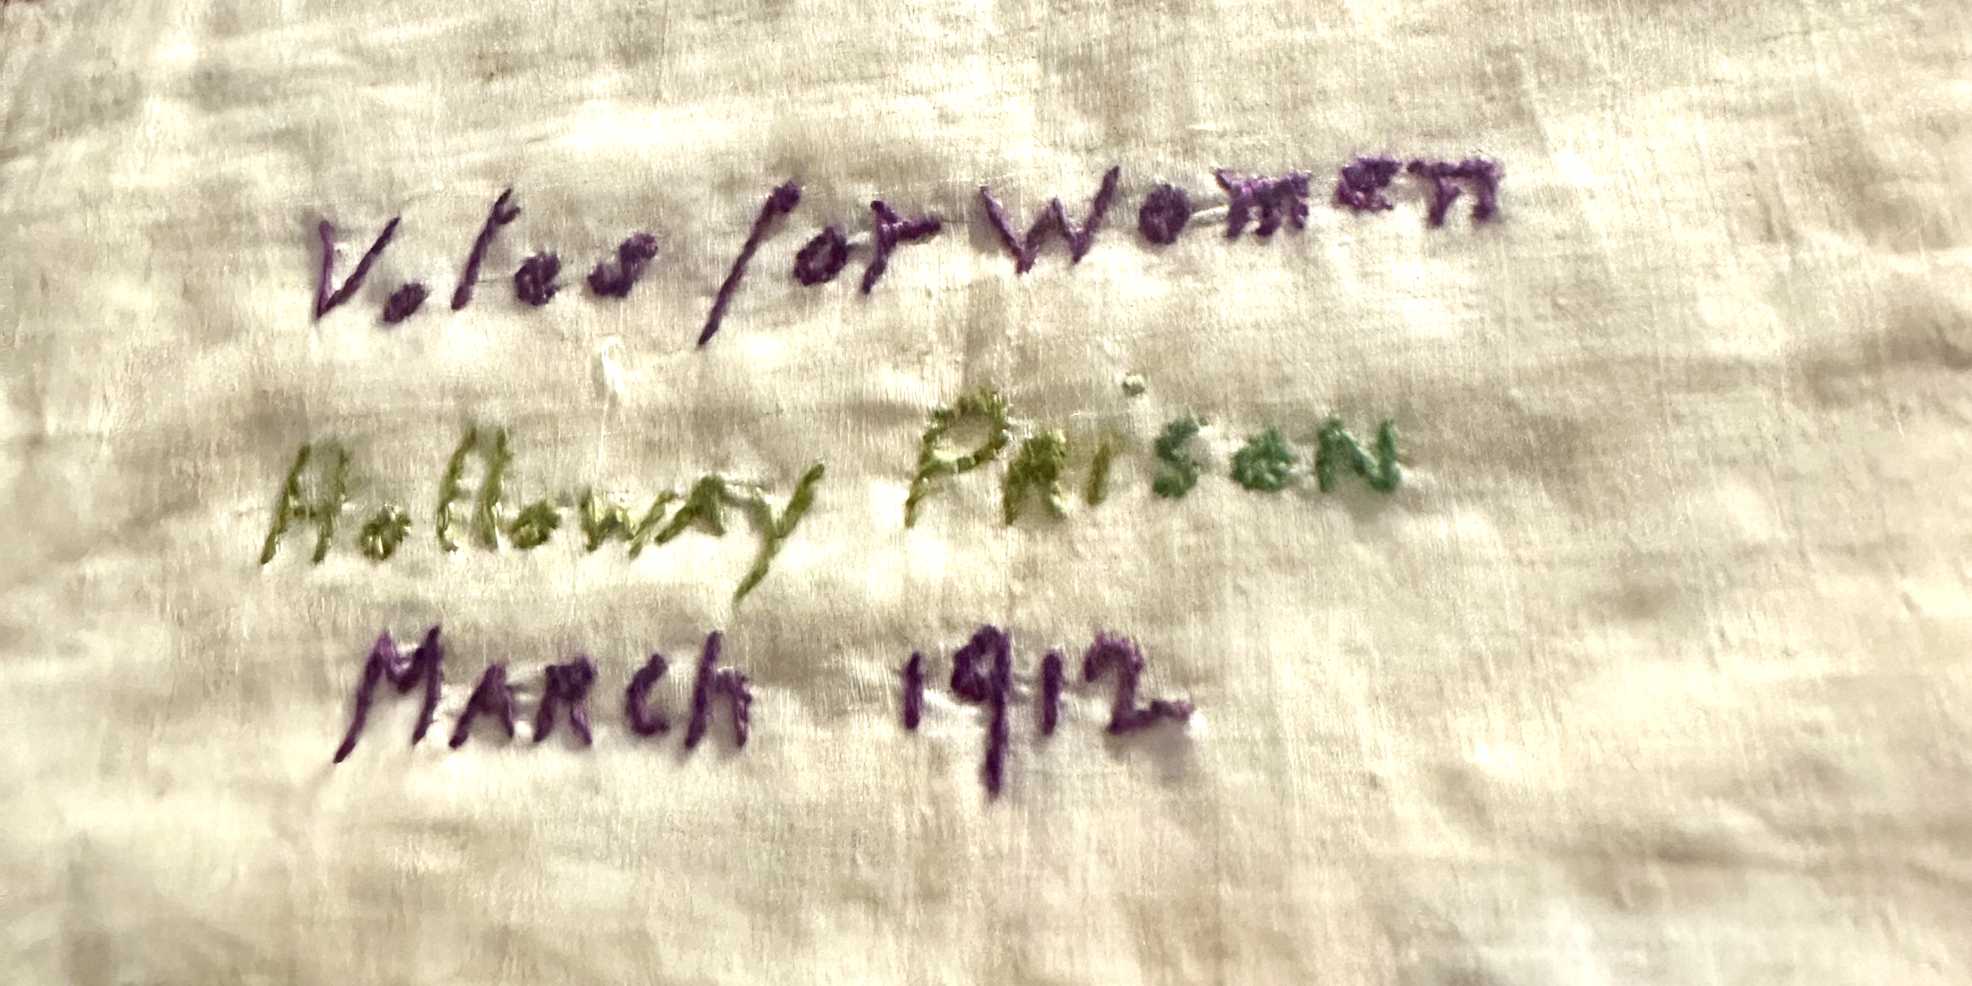 Votes for Women
Holloway Prison
March 1912